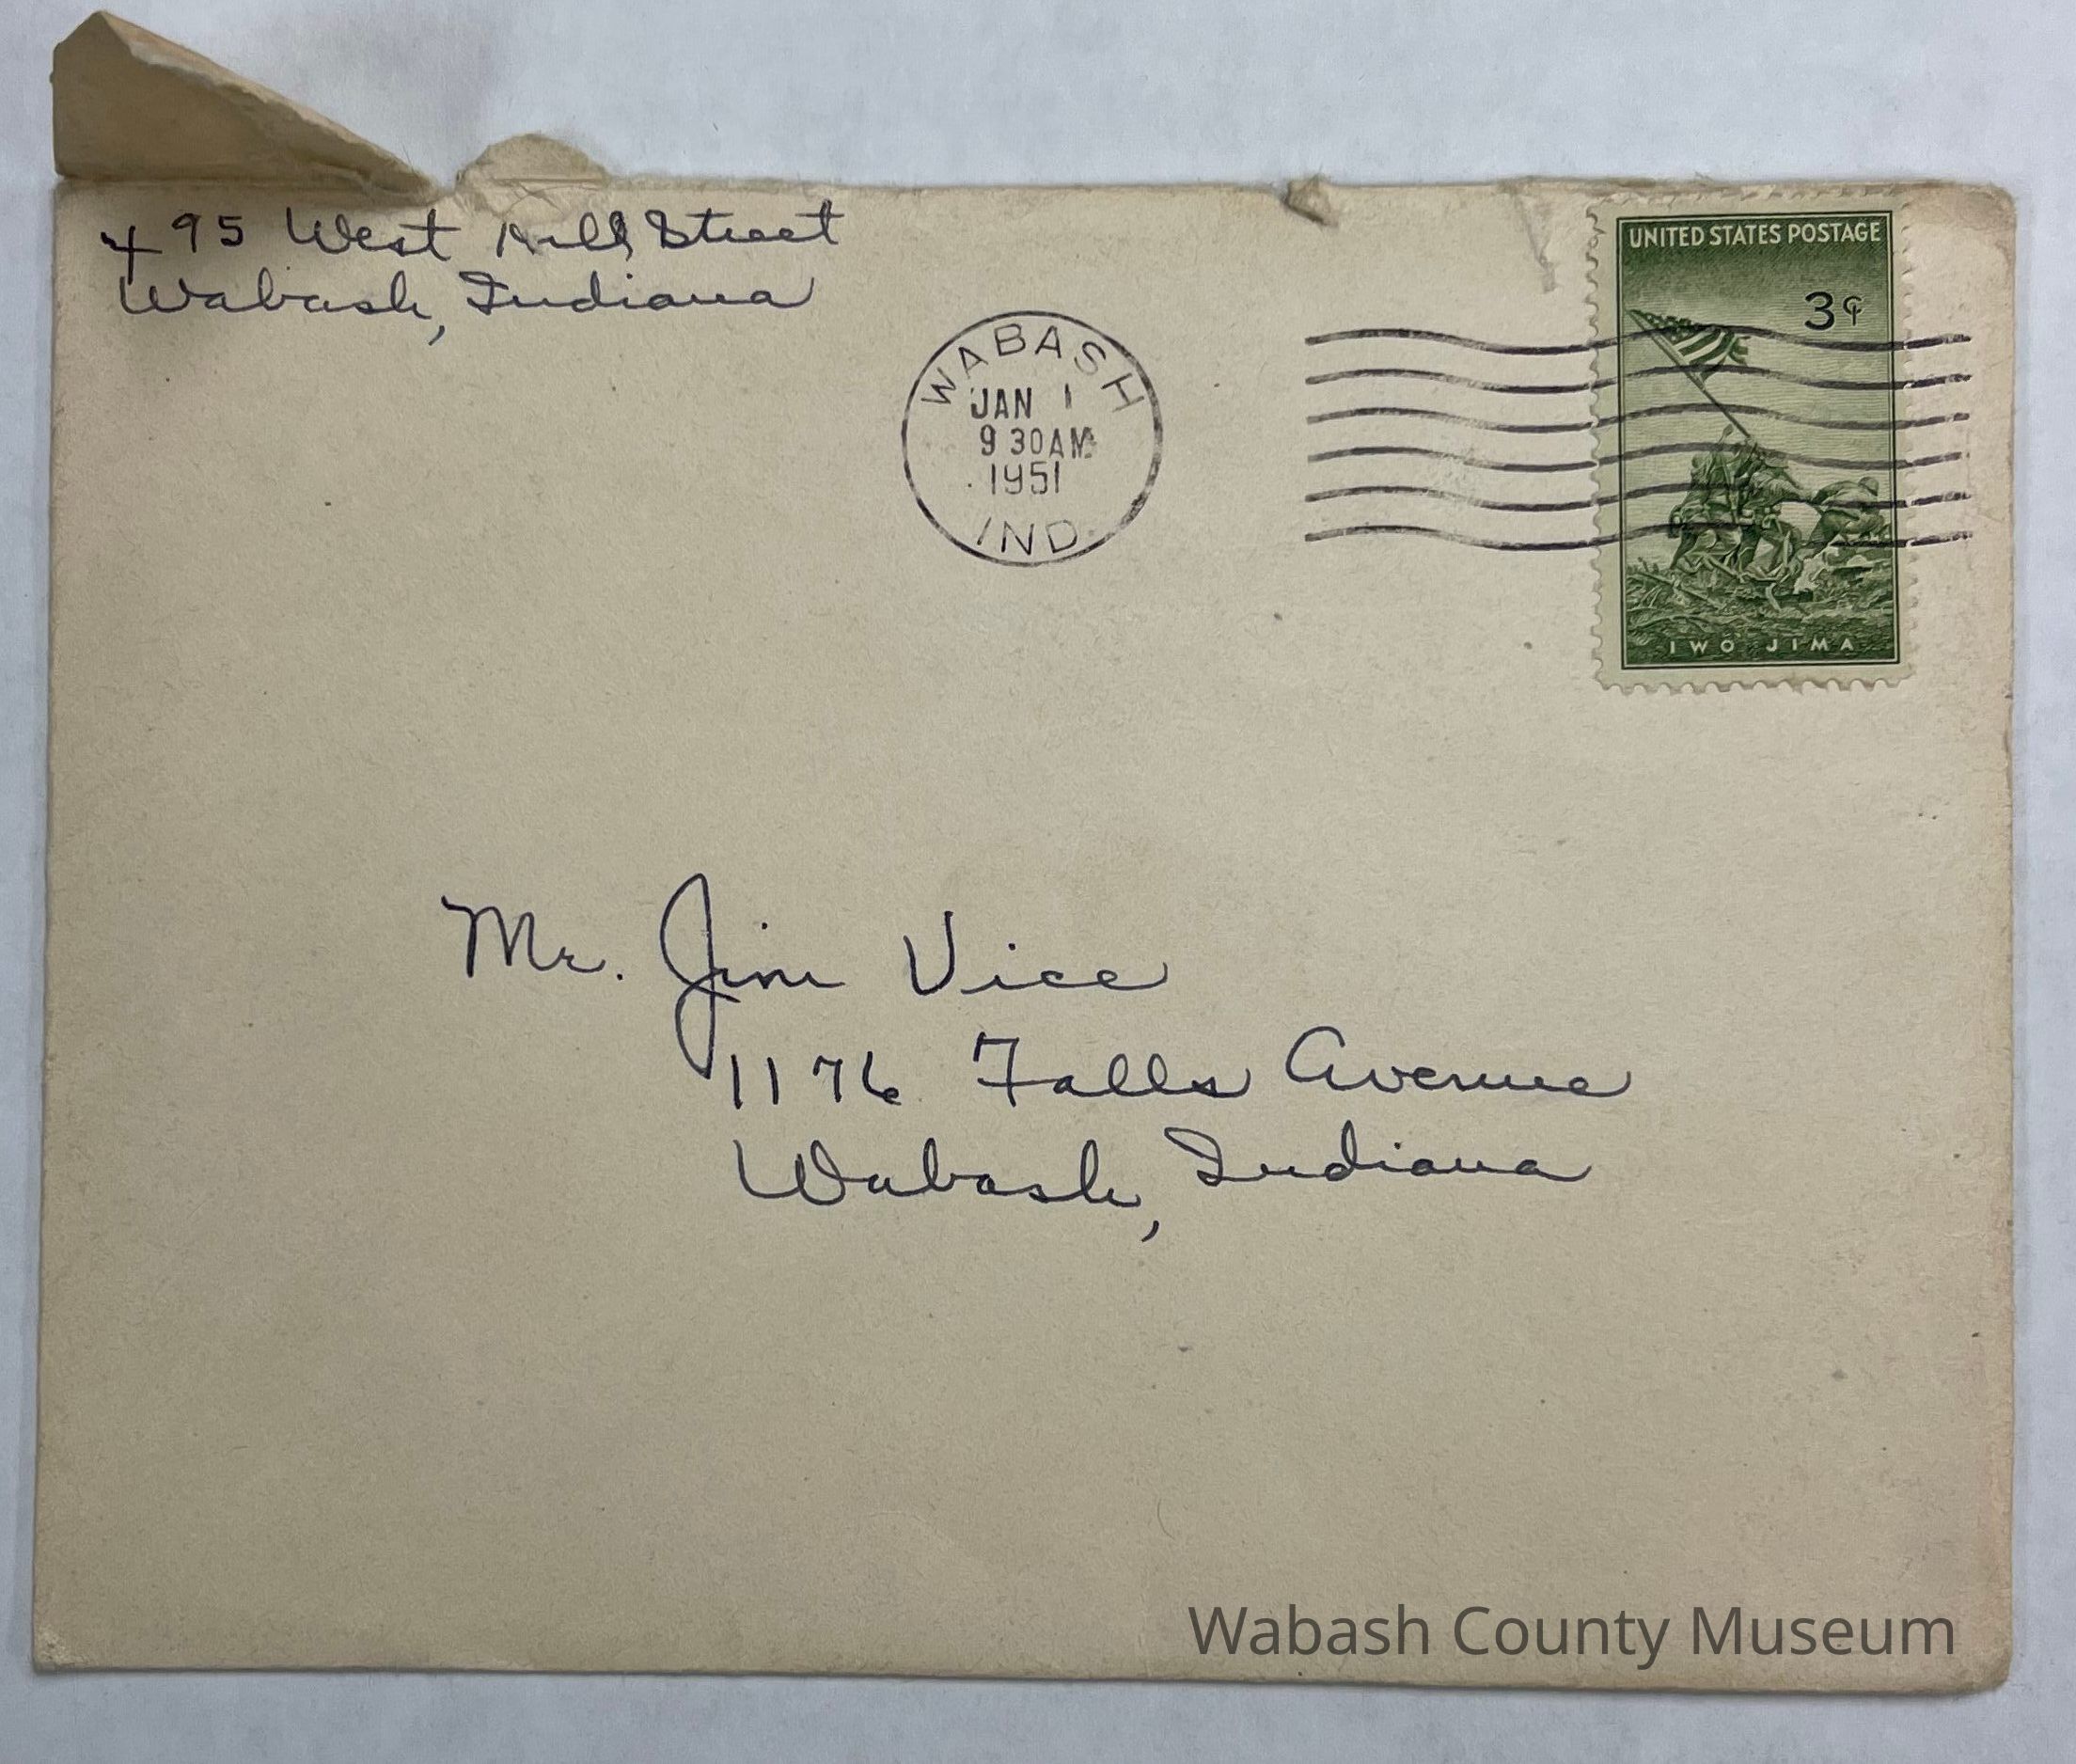 495 West Hill Street
Wabash, Indiana
WABASH
JAN 1
9 30AM
1951
IND.
UNITED STATES POSTAGE
3¢
IWO JIMA
Mr. Jim Vice
1176 Falls Avenue
Wabash, Indiana
Wabash County Museum